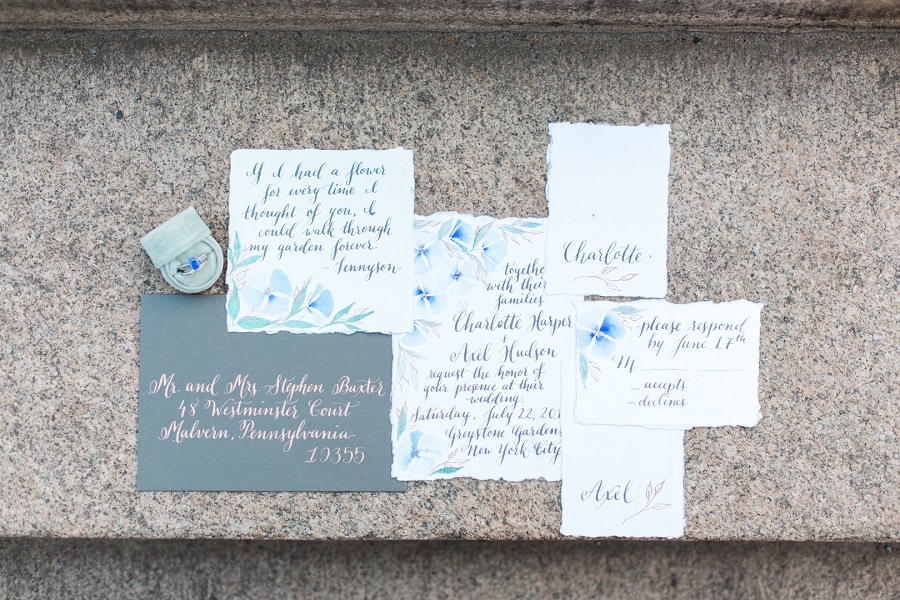 If I had a flower
for every time I
thought of you, I
could walk through
my garden forever.
- Tennyson
Mr. and Mrs. Stephen Baxter
48 Westminster Court
Malvern, Pennsylvania
19355
together
with their
families
Charlotte Harper
+
Axel Hudson
request the honor of
your presence at their
wedding.
Saturday, July 22,
Greystone Garden
New York City
Charlotte
please respond
by June 17th
M
accepts
declines
Axel